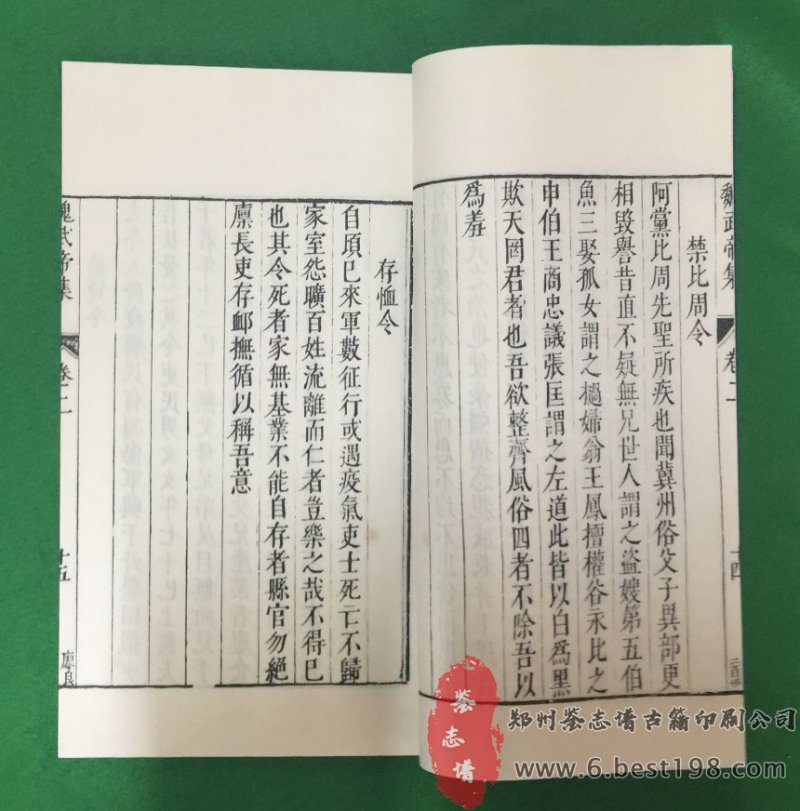 魏武帝集 卷二 十四
禁比周令
阿黨比周先聖所疾也聞冀州俗父子異部更
相毀譽昔直不疑無兄世人謂之盜嫂第五伯
魚三娶孤女謂之撾婦翁王鳳擅權谷永比之
申伯王商忠議張匡謂之左道此皆以白爲黑
欺天罔君者也吾欲整齊風俗四者不除吾以
爲羞
存恤令
自頃已來軍數征行或遇疫氣吏士死亡不歸
家室怨曠百姓流離而仁者豈樂之哉不得已
也其令死者家無基業不能自存者縣官勿絕
廩長吏存卹撫循以稱吾意
魏武帝集 卷二 十五
鉴志谱
郑州鉴志谱古籍印刷公司
www.6.best198.com